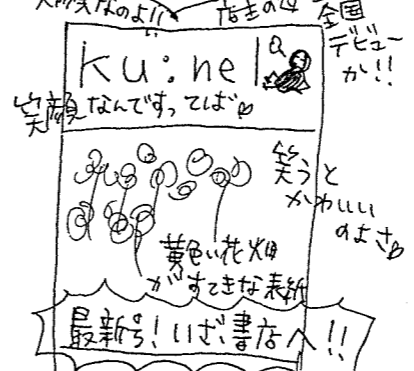 なのよ!!
店主の
全国
デビュー
か!!
ku:nel
笑顔なんですってば
笑うと
かわいい
のよさ
黄色い花畑
がすてきな表紙
最新号!いざ書店へ!!